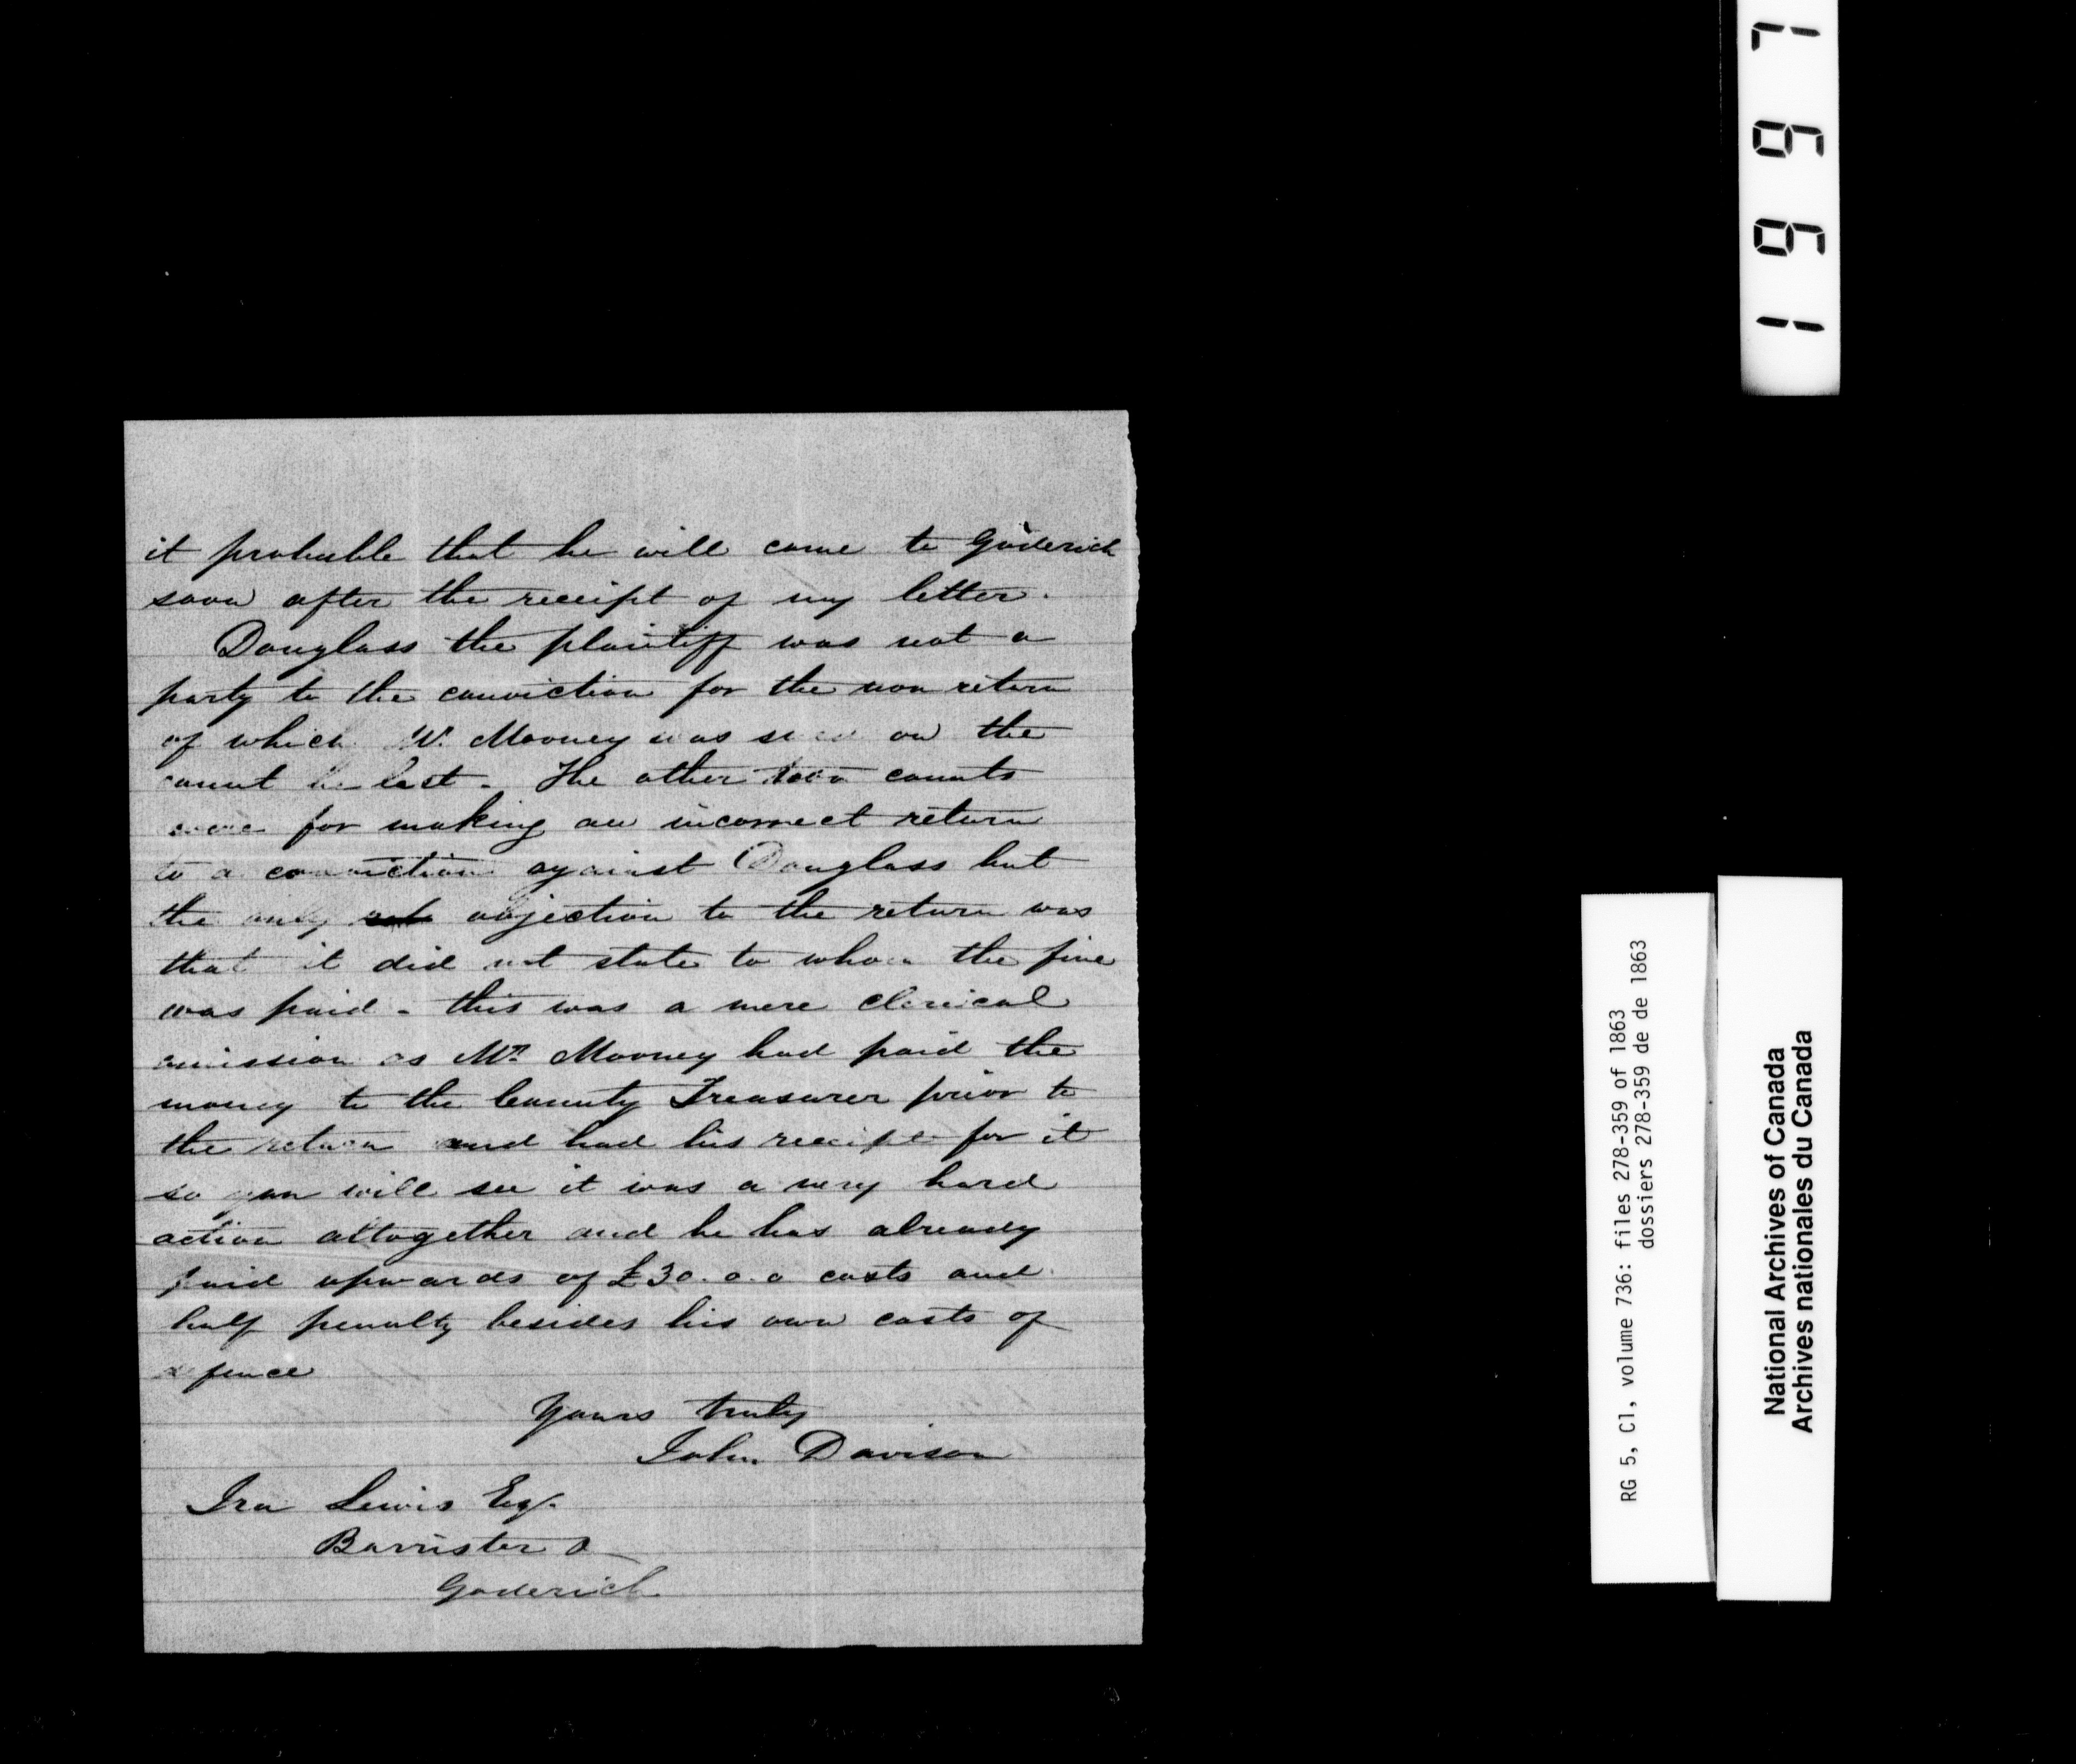 it probable that he will come to Goderich
soon after the receipt of my letter.
Douglass the plaintiff was not a
party to the conviction for the non return
of which Mr. Mooney was sued on the
count he lost - The other two counts
were for making an incorrect return
to a conviction against Douglass but
the only objection to the return was
that it did not state to whom the fine
was paid - this was a mere clerical
omission as Mr. Mooney had paid the
money to the County Treasurer prior to
the return and had his receipt for it
so you will see it was a very hard
action altogether and he has already
paid upwards of £30.0.0 costs and
half penalty besides his own costs of
defence
Yours truly
John Davison
Ira Lewis Esq.
Barrister
Goderich
1 6 6 7
RG 5, C1, volume 736: files 278-359 of 1863
dossiers 278-359 de de 1863
National Archives of Canada
Archives nationales du Canada